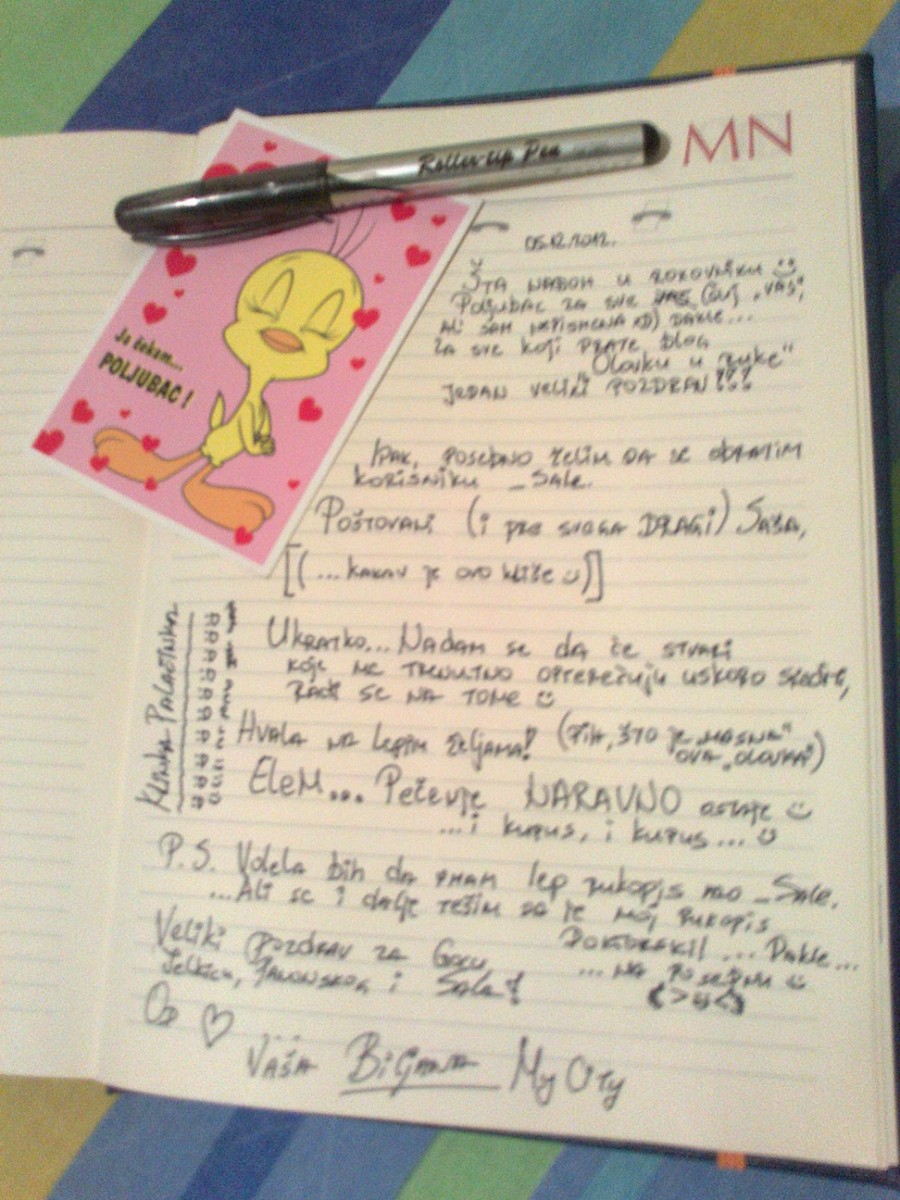 Roller-tip Pen
MN
Ja čekam...
POLJUBAC!
05.12.2012.
ŠTA NAĐOH U ROKOVNIKU
POLJUBAC ZA SVE VAS (UJ, „VAS",
ALI SAM NEPISMENA XD) DAKLE...
ZA SVE KOJI PRATE BLOG
"OLOVKU U RUKE"
JEDAN VELIKI POZDRAV!!!
IPAK, POSEBNO ŽELIM DA SE OBRATIM
KORISNIKU _SALE.
POŠTOVANI (i PRE SVEGA DRAGI) SAŠA,
[(...KAKAV JE OVO KLIŠE :)]
UKRATKO... NADAM SE DA ĆE STVARI
KOJE ME TRENUTNO OPTEREĆUJU USKORO
SE NA TOME :)
HVALA NA LEPIM ŽELJAMA! (PIH, ŠTO JE „MASNA"
OVA „OLOVKA")
ELEM... PEČENJE NARAVNO OSTAJE :)
...i KUPUS, i KUPUS... :)
P.S. Volela bih da imam lep rukopis kao _Sale.
...Ali se i dalje tešim da je moj rukopis
DOKTORSKI! ... Dakle...
... NA :)
Veliki pozdrav za Gocu,
i Saleta!
OD ♡
VAŠA BILJANA My City
KLINIKA PALAČINKA